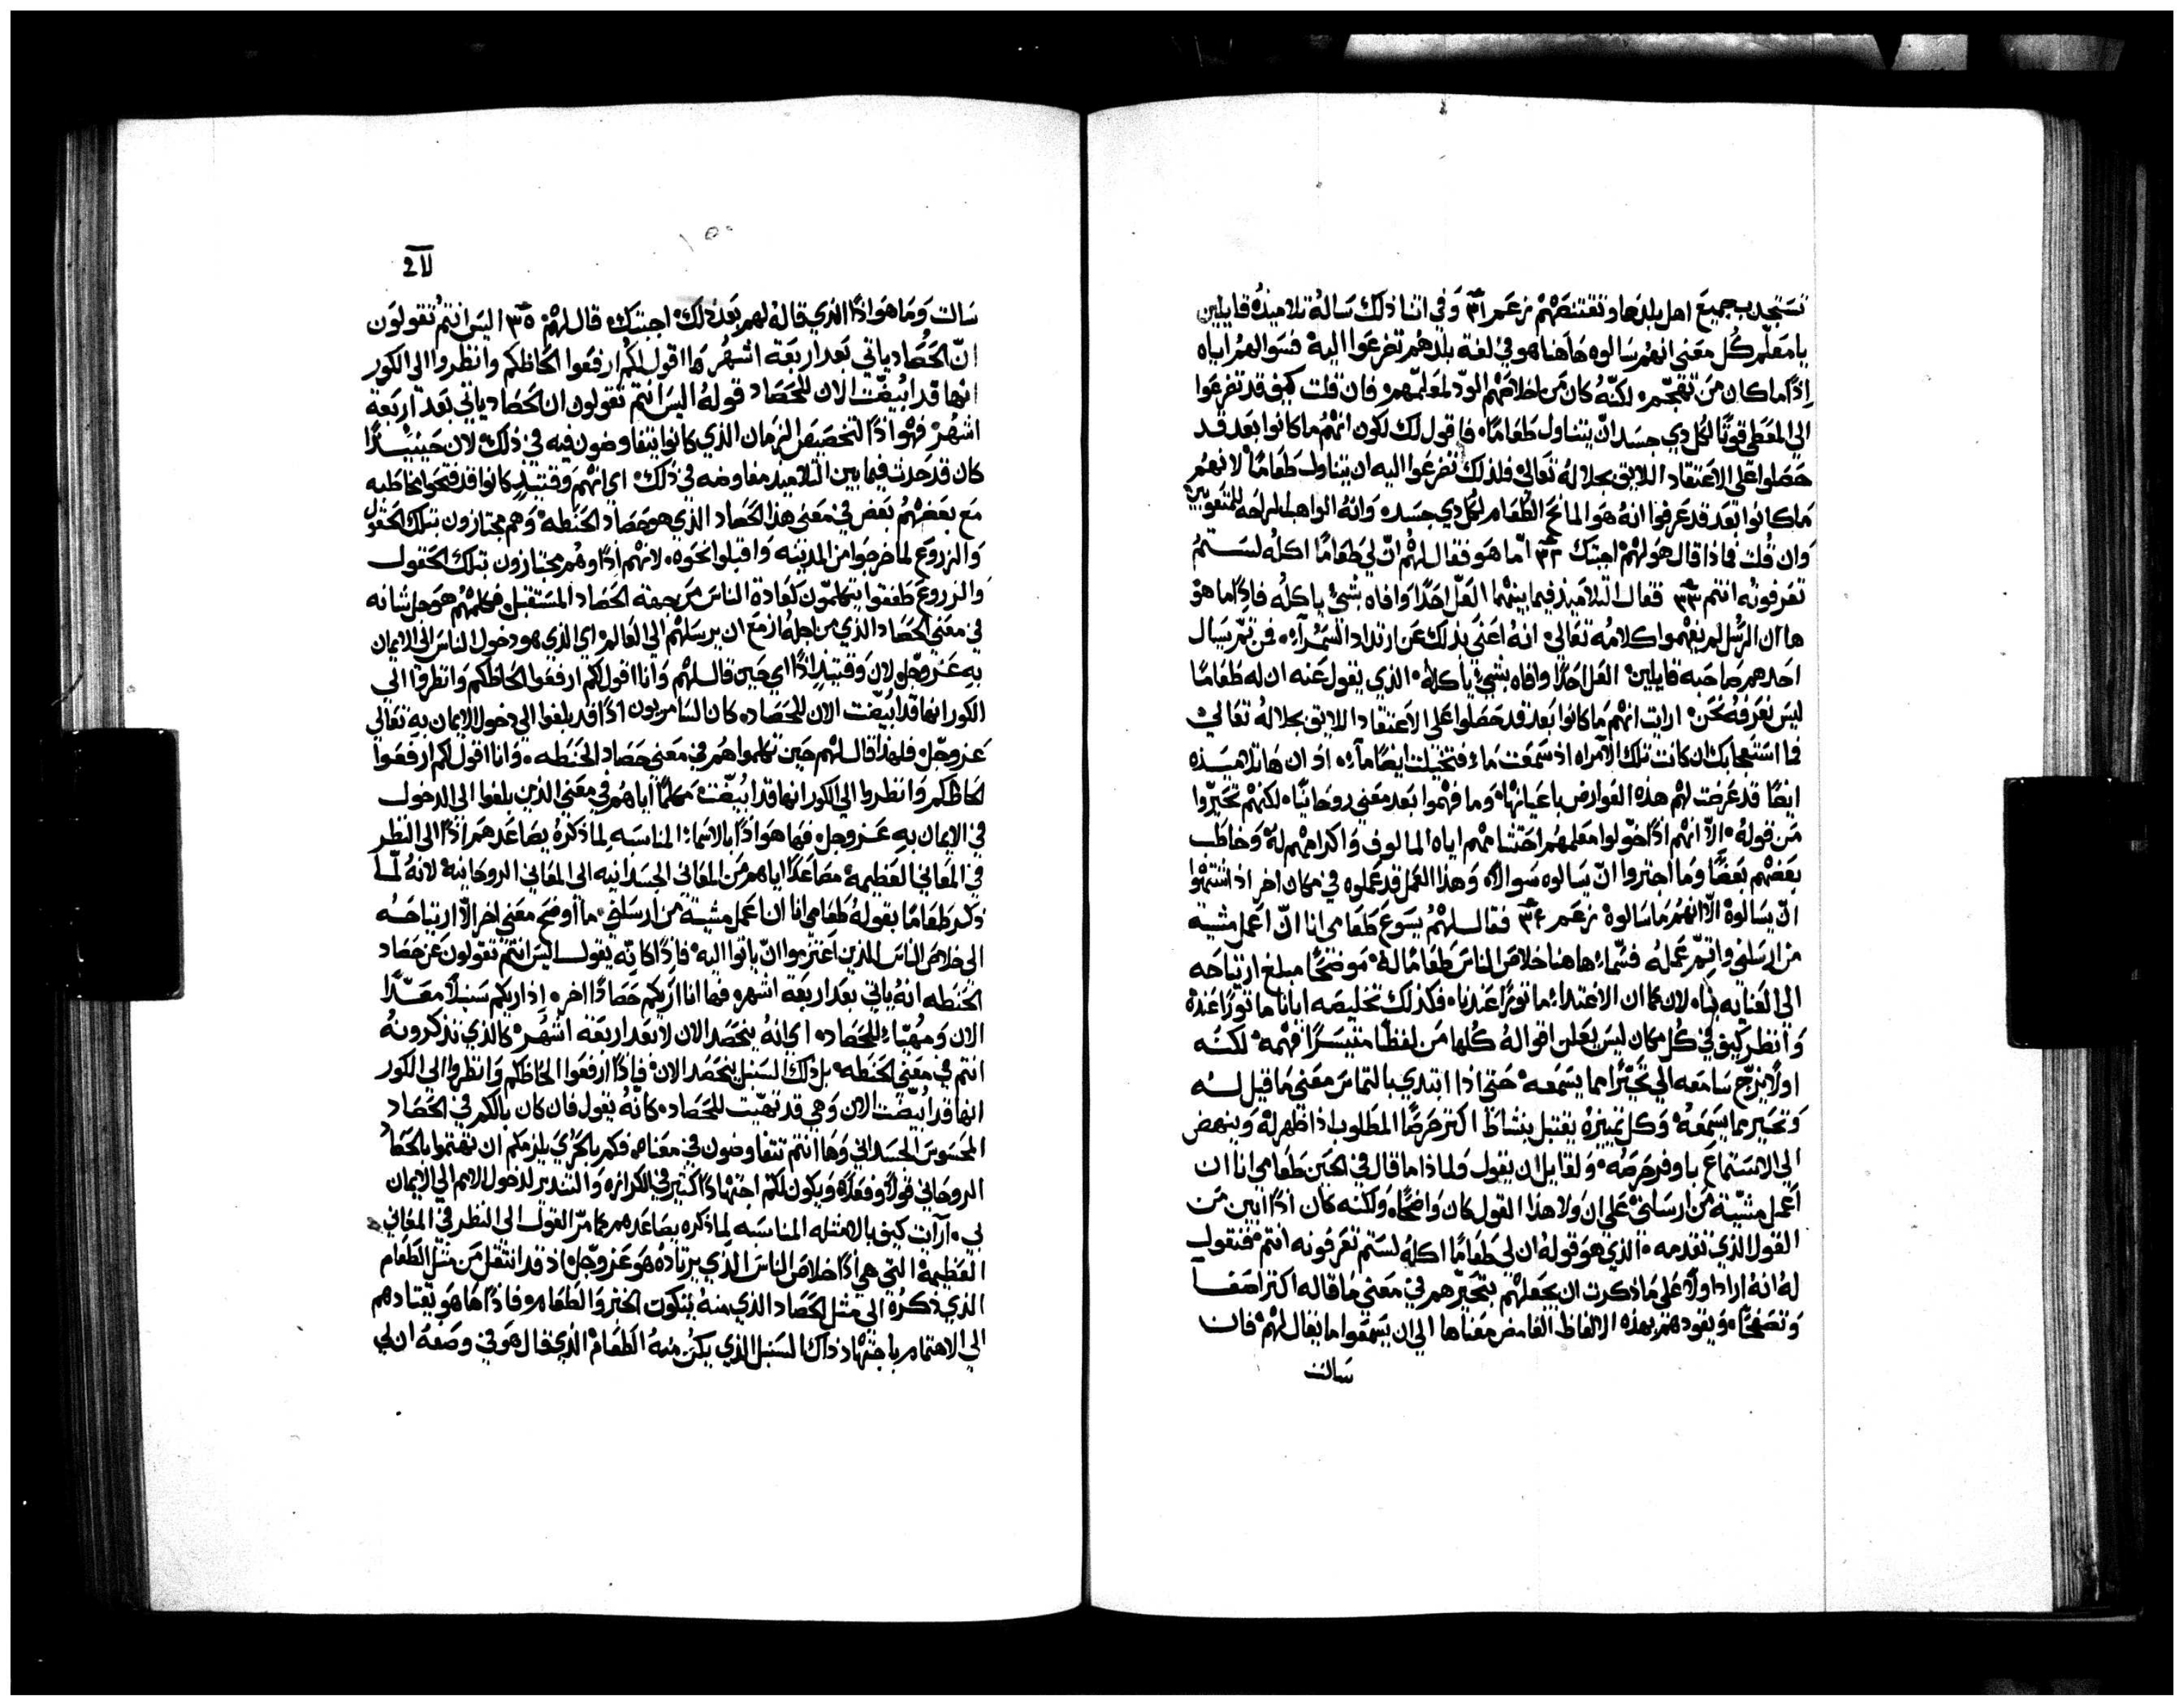 تستجدب جميع اهل بلدها وتقتنصهم زعم ٣١ وفي اثنا ذلك ساله تلاميذه قايلين
يا معلم كل معنى انهم سالوه هاهنا هو في لغة بلدهم تضرعوا اليه فسوالهم اياه
اذًا ما كان من تهجم لكنه كان من اخلاصهم الود لمعلمهم فان قلت كيف قد تضرعوا
الى المعطي قوتًا لكل دي جسد ان يتناول طعامًا فاقول لك لكون انهم ما كانوا بعد قد
حصلوا على الاعتقاد اللايق بجلاله تعالى فلذلك تضرعوا اليه ان يتناول طعامًا لانهم
ما كانوا بعد قد عرفوا انه هو المانح الطعام لكل دي جسد وانه الواهب الراحه للمتعوبين
وان قلت فماذا قال هو لهم اجبتك ٣٢ امّا هو فقال لهم انّ لي طعامًا اكله لستم
تعرفونه انتم ٣٣ فقال التلاميذ فيما بينهم العلّ احدًا وافاه بشيء ياكله فاذًا ما هو
ها ان الرسل لم يفهموا كلامه تعالى انه اعنى بذلك عن ارتداد السمرآء فمن ثمّ يسال
احدهم صاحبه قايلين العل احدًا وافاه بشيء ياكله الذي يقول عنه ان له طعامًا
ليس نعرفه نحن ارات انهم ما كانوا بعد قد حصلوا على الاعتقاد اللايق بجلاله تعالى
فما استعجابك ان كانت تلك الامراه اذ سمعت ماء فتخيلت ايضًا مآء اد ان ها تلاميذه
ايضًا قد عرضت لهم هذه العوارض باعيانها وما فهموا بعد معنى روحانيًا لكنهم تحيّروا
من قوله الّا انهم اذًا خوّلوا معلمهم احتشامهم اياه المالوف واكرامهم له وخاطب
بعضهم بعضًا وما اجتروا انّ يسالوه سوالًا وهذا العمل قد عملوه في مكان اخر اذ اشتهوا
انّ يسالوه الّا انهم ما سالوه زعم ٣٤ فقال لهم يسوع طعامي انا انّ اعمل مشية
من ارسلني واتمّم عمله فسّماء هاهنا خلاص الناس طعامًا له موضحًا مبلغ ارتياحه
الى العنايه بنا لان كما ان الاغتداء ماتورًا عندنا فكذلك تخليصه ايانا ماتورًا عنده
وانظر كيف في كل مكان ليس يعلن اقواله كلها من لفظًا متيسرًا فهمه لكنه
اولًا يزجّ سامعه الى تحيّرًا مما يسمعه حتى اذا ابتدي بالتماس معنى ما قيل له
وتحير مما يسمعه وكل تمييزه يقتبل بنشاط اكتر حرصًا المطلوب اذا ظهر له وينهض
الى الاستماع باوفر حرصه ولقايل ان يقول ولماذا ما قال في الحين طعامي انا ان
اعمل مشيّة من ارسلني على ان ولا هذا القول كان واضحًا ولكنه كان اذًا ابين من
القول الذي تقدمه الذي هو قوله ان لي طعامًا اكله لستم تعرفونه انتم فنقول
له انه اراد اولًا على ما ذكرت ان يجعلهم بتحيّرهم في معنى ما قاله اكتر اصغآ
وتصفحًا ويقودهم بهذه الالفاظ الغامض معناها الى ان يسمعوا ما يقال لهم فان
سالت
سالت وما هو اذًا الذي قاله لهم بعد ذلك اجبتك قال لهم ٣٥ اليس انتم تقولون
انّ الحصاد ياتي بعد اربعة اشهر ها اقول لكم ارفعوا الحاظكم وانظروا الى الكور
انها قد ابيضّت الان للحصاد قوله اليس انتم تقولون ان الحصاد ياتي بعد اربعة
اشهر فهو اذًا لتخصيص الزمان الذي كانوا يتفاوضون فيه في ذلك لان حينيذًا
كان قد حدث فيما بين التلاميذ مفاوضه في ذلك اي انهم وقتيذ كانوا قد فتحوا مخاطبه
مع بعضهم بعض في معنى هذا الحصاد الذي هو حصاد الحنطه وهم مجتازون بتلك الحقول
والزروع لما خرجوا من المدينه واقبلوا نحوه لانهم اذًا وهم مجتازون بتلك الحقول
والزروع طفقوا يتكلمون كعادة الناس من جهة الحصاد المستقبل فكلمهم هو جل شانه
في معنى الحصاد الذي من اجله ازمع ان يرسلهم الى العالم اي الذي هو دخول الناس الى الايمان
به عز وجل لان وقتيذ اذًا اي حين قال لهم وانا اقول لكم ارفعوا الحاظكم وانظروا الى
الكور انها قد ابيضّت الان للحصاد كان السامريون اذًا قد بلغوا الى دخول الايمان به تعالى
عز وجل فلهذا قال لهم حين تكلموا هم في معنى حصاد الحنطه وانا اقول لكم ارفعوا
لحاظكم وانظروا الى الكور انها قد ابيضّت مكلمًا اياهم في معنى الذين بلغوا الى الدخول
في الايمان به عز وجل فها هو اذًا بالاسماء المناسبه لما ذكره يصاعدهم اذًا الى النظر
في المعاني العظيمة مصاعدًا اياهم من المعاني الجسدانيه الى المعاني الروحانية لانه لمّا
ذكر طعامًا بقوله طعامي انا ان اعمل مشية من ارسلني ما اوضح معنى اخر الّا ارتياحه
الى خلاص الناس الذين اعتزموا انّ ياتوا اليه فاذًا كانه يقول اليس انتم تقولون عن حصاد
الحنطه انه ياتي بعد اربعة اشهر فها انا اريكم حصادًا اخر اذ اريكم سنبلًا معدًّا
الان ومهيّاء للحصاد اي انه يتحصد الان لا بعد اربعة اشهر كالذي تذكرونه
انتم في معنى الحنطه بل ذلك السنبل يتحصد الان فاذًا ارفعوا الحاظكم وانظروا الى الكور
انها قد ابيضّت الان وهي قد تهيّت للحصاد كانه يقول فان كان بالكم في الحصاد
المحسوس الجسداني وها انتم تتفاوضون في معناه فكم بالحرّي يلزمكم ان تهتموا بالحصاد
الروحاني قولًا وفعلًا ويكون لكم اجتهادًا كثير في الكرازه والتندير لدخول الامم الى الايمان
بي ارآت كيف بالامتله المناسبه لما ذكره يصاعدهم كما مرّ القول الى النظر في المعاني
العظيمة التي هي اذًا خلاص الناس الذي يرتاده هو عز وجل اذ قد انتقل من متل الطعام
الذي ذكره الى متل الحصاد الذي منه يتكون الخبز والطعام فاذًا ها هو يقتادهم
الى الاهتمام باجتهاد ذاك السنبل الذي يكن منه الطعام الذي قال هو في وصفه ان لي